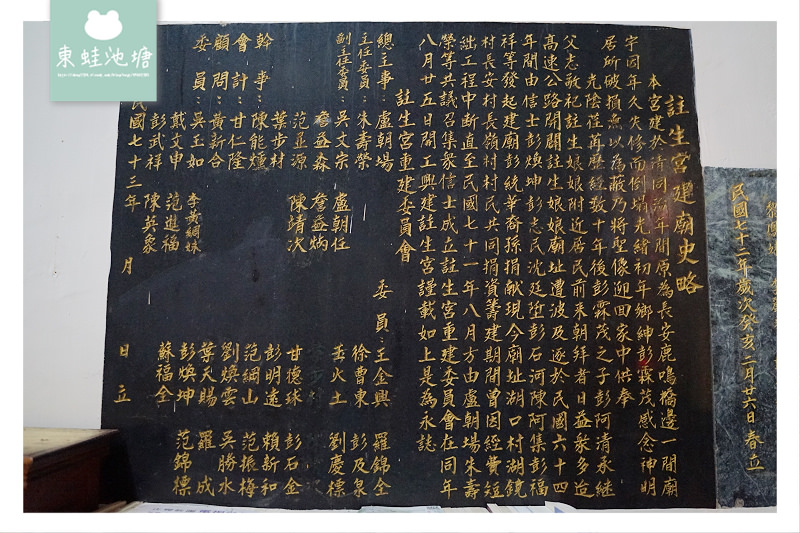 註生宮建廟史略
本宮建於清同治年間原為長安鹿鳴橋邊一間廟
宇因年久失修而倒塌光緒初年鄉紳彭霖茂感念神明
居所破損無以為蔽乃將聖像迎回家中供奉
光陰荏苒歷經數十年後彭霖茂之子彭阿清承繼
父志敬祀註生娘娘附近居民前來朝拜者日益眾多迨
高速公路開闢註生娘娘廟址遭波及遂於民國六十四
年間由信士彭煥坤彭志民沈廷埕彭石河陳阿集彭福
祥等發起建廟彭統華裔孫捐獻現今廟址湖口村湖鏡
村長安村長嶺村村民共同捐資籌建期間曾因經費短
絀工程中斷直至民國七十一年八月方由盧朝場朱壽
榮等共議召集眾信士成立註生宮重建委員會在同年
八月廿五日開工興建註生宮謹載如上是為永誌
註生宮重建委員會
總主事：盧朝場
主任委員：朱壽榮 盧朝任
副主任委員：吳文宗 詹益炳
詹益森 陳靖次
范亞源
葉步村
幹事：陳能爐
會計：甘仁隆
顧問：黃新合
委員：吳玉如 李黃綢妹
戴文申 范進福
彭武祥 陳英象
委員：王金興 羅錦全
徐曹東 彭及泉
姜火土 劉慶標
甘德球 彭石金
彭明達 賴新和
范綱山 范振梅
劉煥雲 吳勝水
葉天賜 羅成
彭煥坤 范錦標
蘇福全
民國七十三年 月 日 立
民國七十二年歲次癸亥二月廿六日 春立
東蛙池塘